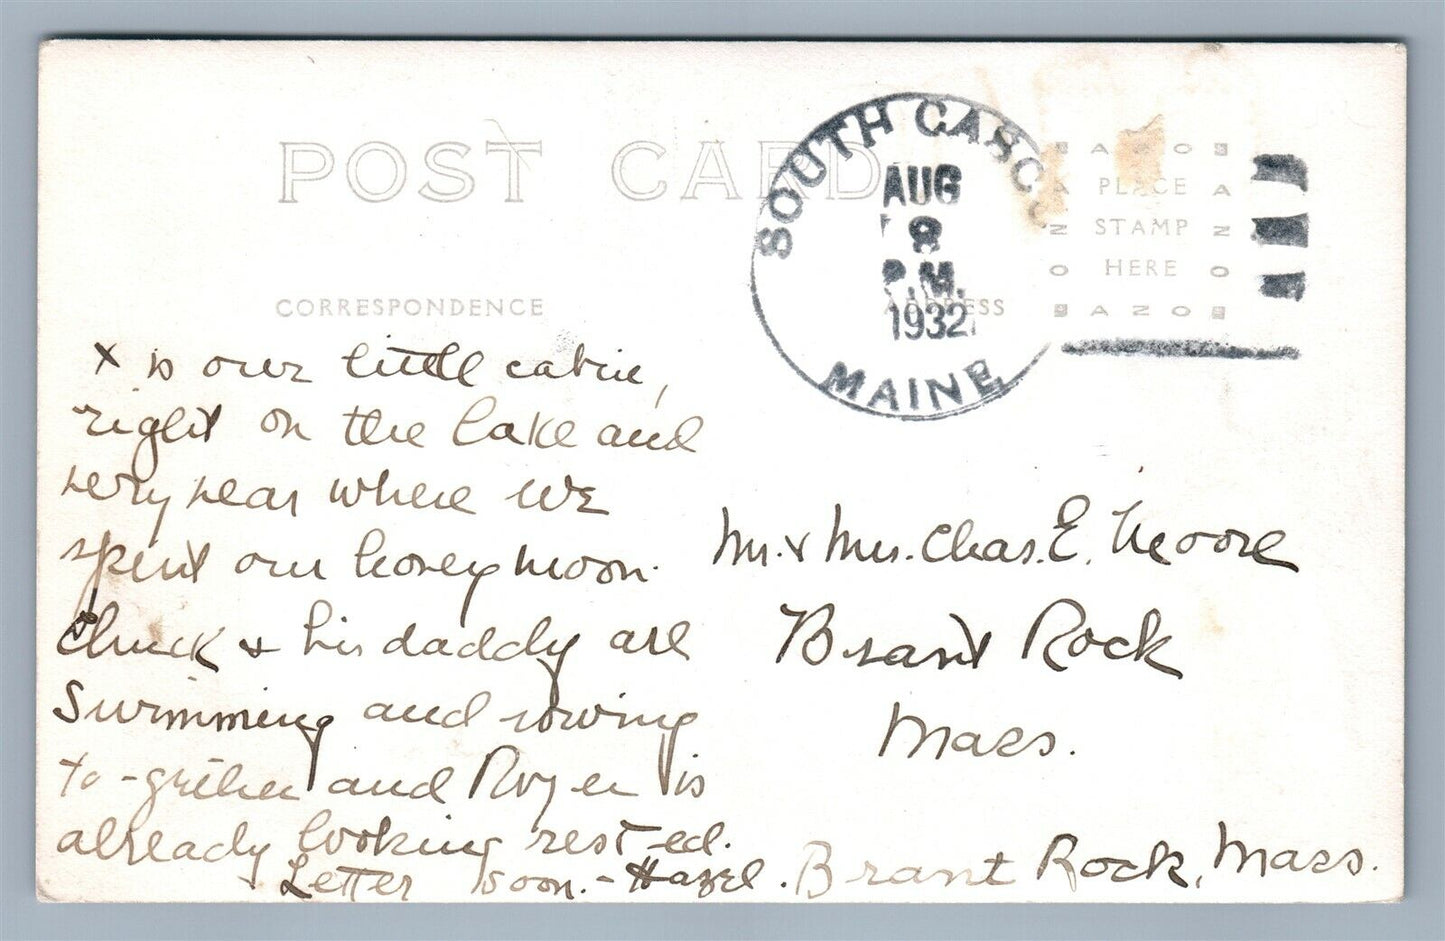 POST CARD
SOUTH CASCO
AUG
8
P.M.
1932
MAINE
AZO
PLACE
STAMP
HERE
AZO
CORRESPONDENCE
ADDRESS
x is our little cabin,
right on the lake and
very near where we
spent our honeymoon.
Chuck & his daddy are
swimming and rowing
to-gether and Roger is
already looking rested.
Letter soon. - Hazel.
Mr. & Mrs. Chas. E. Moore
Brant Rock
Mass.
Brant Rock, Mass.